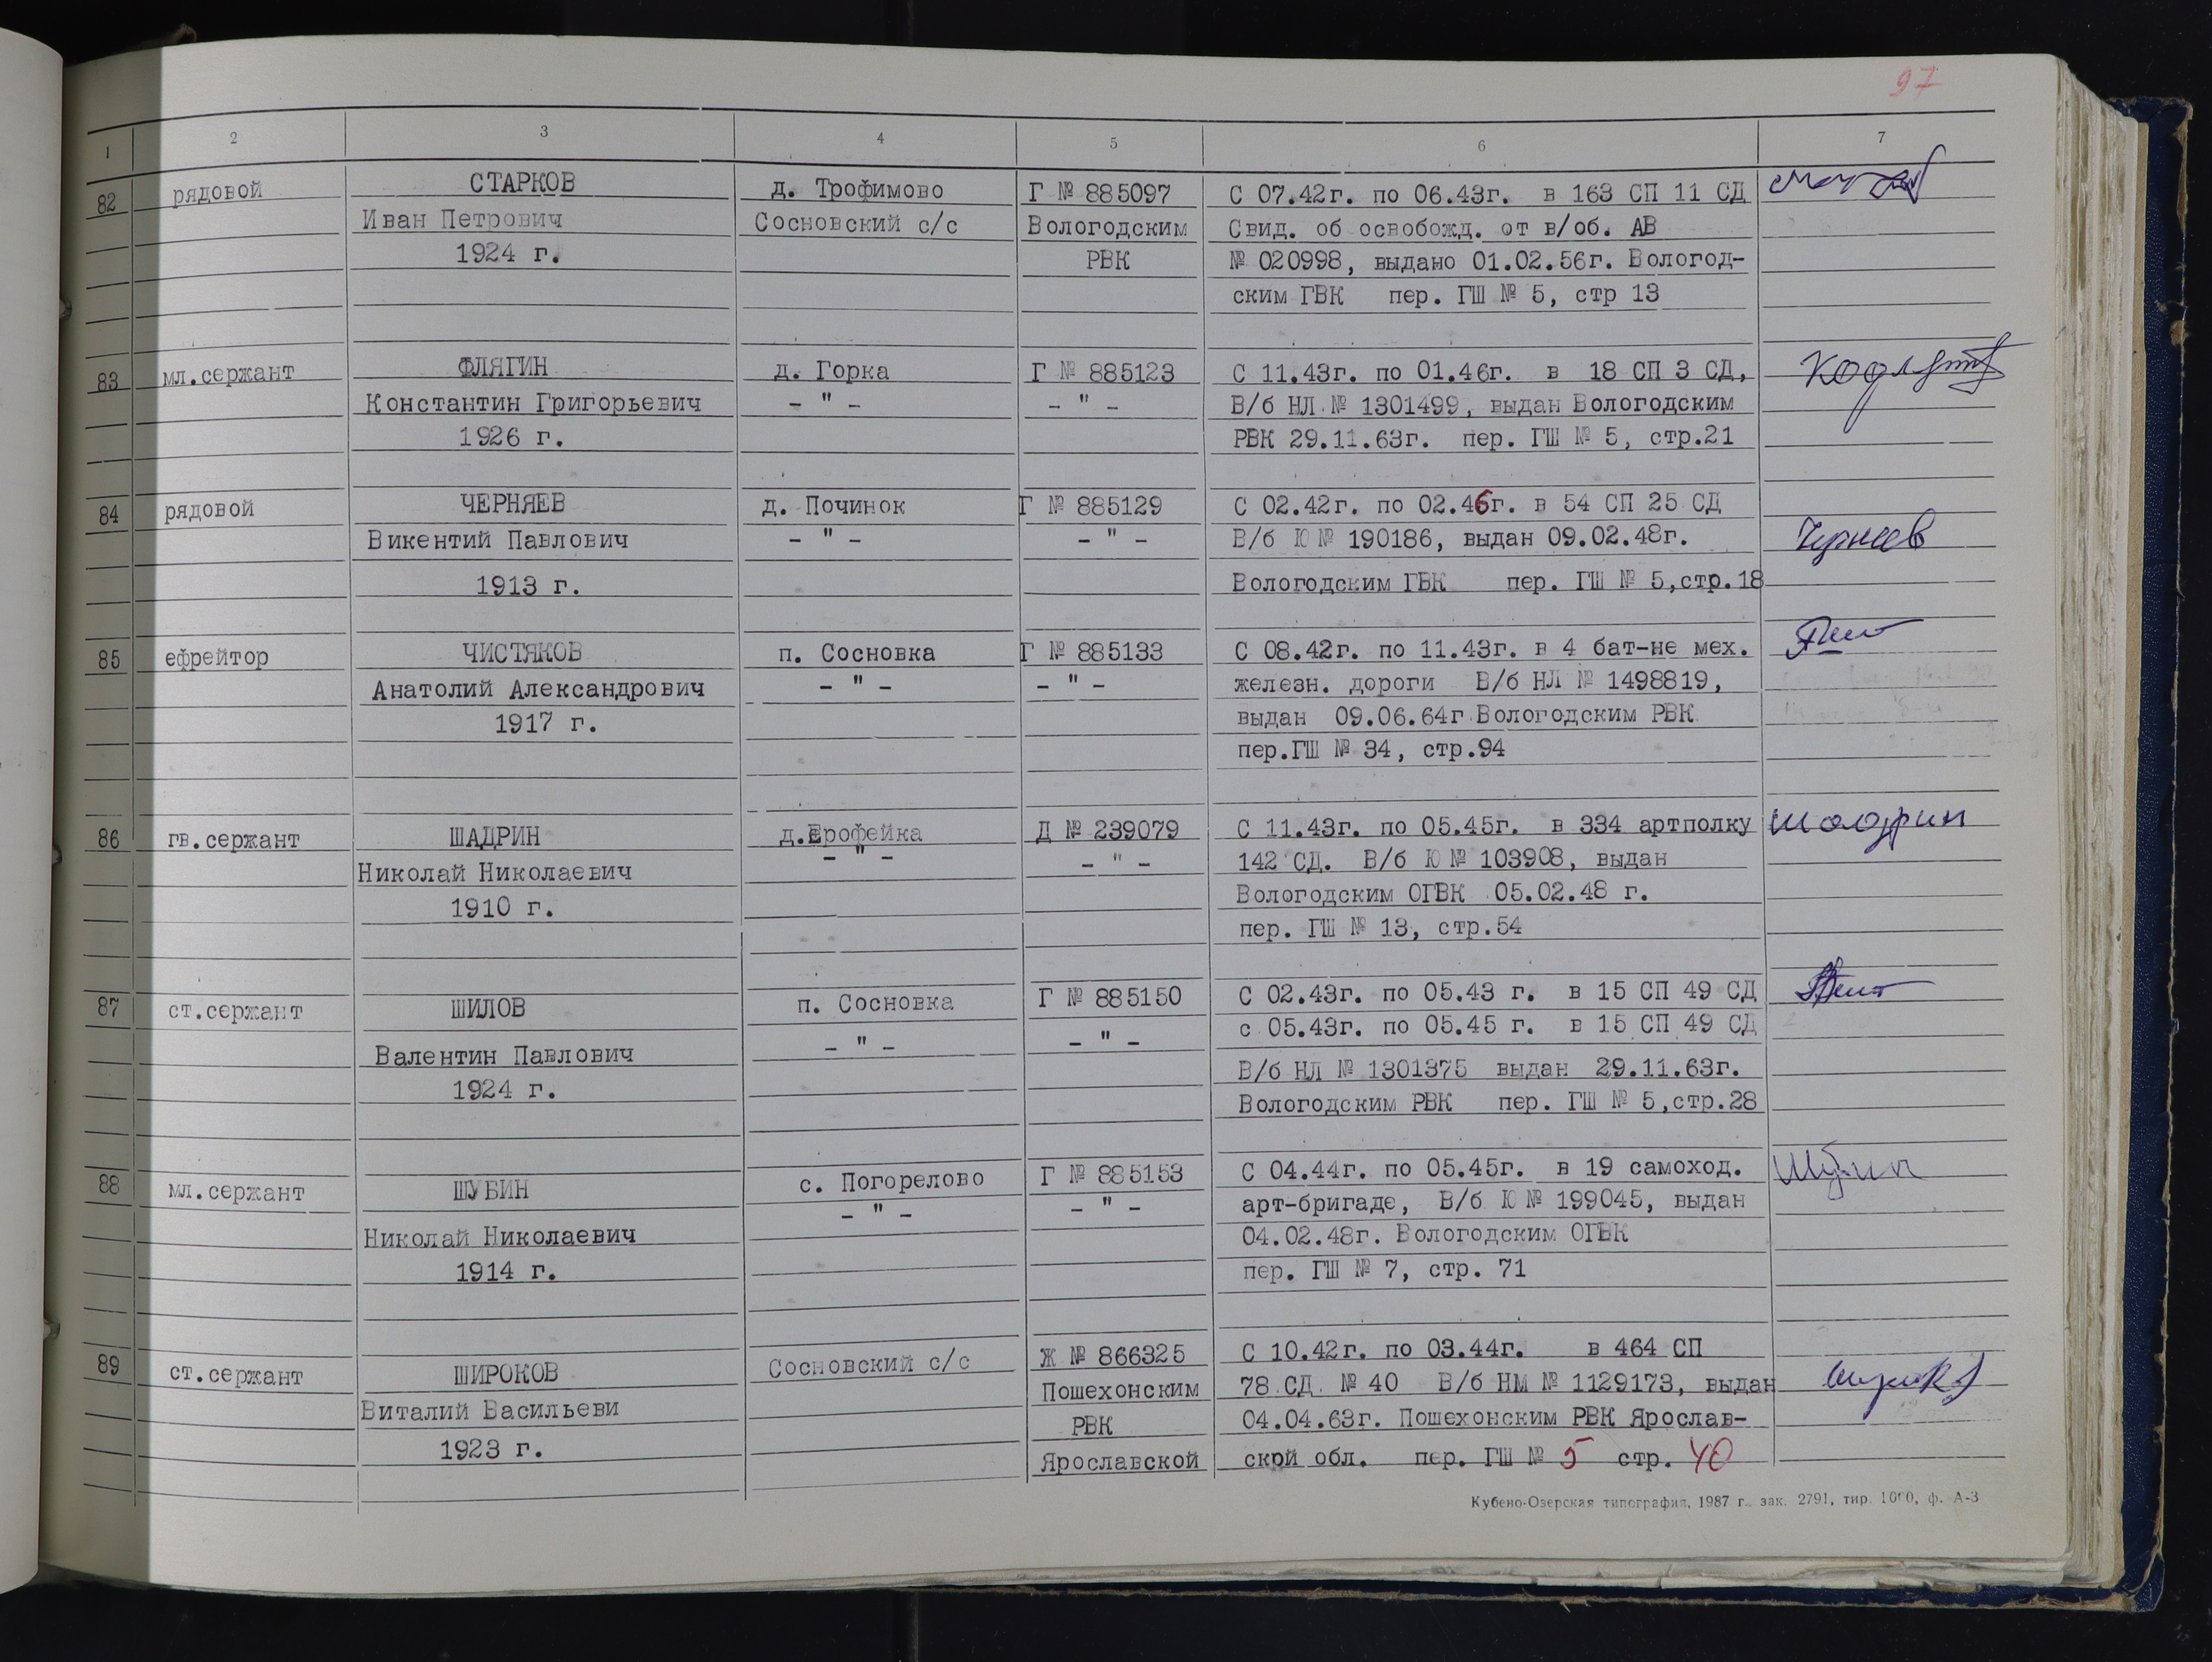 97
1 2 3 4 5 6 7
82 рядовой СТАРКОВ д. Трофимово Г № 885097 С 07.42г. по 06.43г. в 163 СП 11 СД
Иван Петрович Сосновский с/с Вологодским Свид. об освобожд. от в/об. АВ
1924 г. РВК № 020998, выдано 01.02.56г. Вологод-
ским ГВК пер. ГШ № 5, стр 13
83 мл.сержант ФЛЯГИН д. Горка Г № 885123 С 11.43г. по 01.46г. в 18 СП 3 СД,
Константин Григорьевич - " - - " - В/б НЛ № 1301499, выдан Вологодским
1926 г. РВК 29.11.63г. пер. ГШ № 5, стр.21
84 рядовой ЧЕРНЯЕВ д. Починок Г № 885129 С 02.42г. по 02.46г. в 54 СП 25 СД
Викентий Павлович - " - - " - В/б Ю № 190186, выдан 09.02.48г.
1913 г. Вологодским ГВК пер. ГШ № 5,стр.18
85 ефрейтор ЧИСТЯКОВ п. Сосновка Г № 885133 С 08.42г. по 11.43г. в 4 бат-не мех.
Анатолий Александрович - " - - " - железн. дороги В/б НЛ № 1498819,
1917 г. выдан 09.06.64г Вологодским РВК
пер.ГШ № 34, стр.94
86 гв.сержант ШАДРИН д.Ерофейка Д № 239079 С 11.43г. по 05.45г. в 334 артполку Шадрин
Николай Николаевич - " - - " - 142 СД. В/б Ю № 103908, выдан
1910 г. Вологодским ОГВК 05.02.48 г.
пер. ГШ № 13, стр.54
87 ст.сержант ШИЛОВ п. Сосновка Г № 885150 С 02.43г. по 05.43 г. в 15 СП 49 СД
- " - - " - с 05.43г. по 05.45 г. в 15 СП 49 СД
Валентин Павлович В/б НЛ № 1301375 выдан 29.11.63г.
1924 г. Вологодским РВК пер. ГШ № 5,стр.28
88 мл.сержант ШУБИН с. Погорелово Г № 885153 С 04.44г. по 05.45г. в 19 самоход.
- " - - " - арт-бригаде, В/б Ю № 199045, выдан
Николай Николаевич 04.02.48г. Вологодским ОГВК
1914 г. пер. ГШ № 7, стр. 71
89 ст.сержант ШИРОКОВ Сосновский с/с Ж № 866325 С 10.42г. по 03.44г. в 464 СП
Виталий Васильеви Пошехонским 78 СД № 40 В/б НМ № 1129173, выдан
РВК 04.04.63г. Пошехонским РВК Ярослав-
1923 г. Ярославской ской обл. пер. ГШ № 5 стр. 40
Кубено-Озерская типография, 1987 г. зак. 2791, тир. 1000, ф. А-3